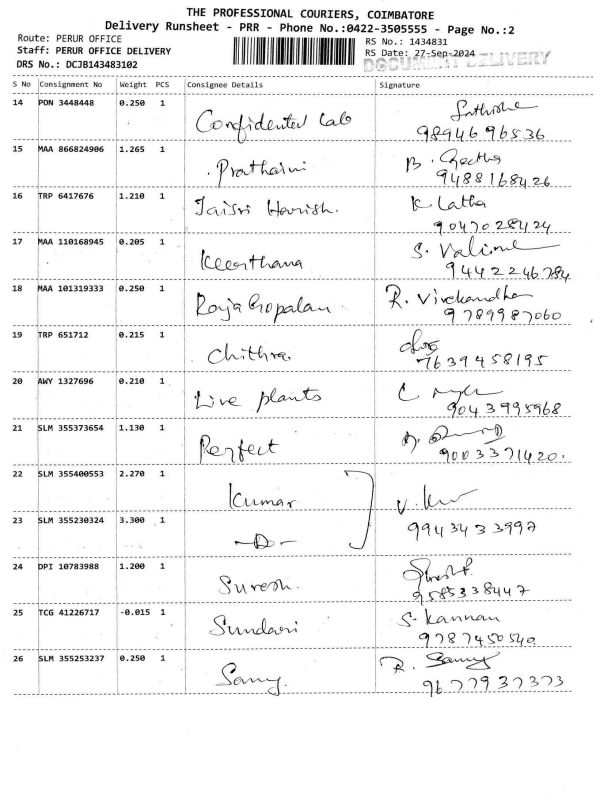 THE PROFESSIONAL COURIERS, COIMBATORE
Delivery Runsheet - PRR - Phone No.:0422-3505555 - Page No.:2
Route: PERUR OFFICE
RS No.: 1434831
Staff: PERUR OFFICE DELIVERY
RS Date: 27-Sep-2024
DOCUMENT DELIVERY
DRS No.: DCJB143483102
S No Consignment No Weight PCS Consignee Details Signature
14 PON 3448448 0.250 1
Confidental Lab
9894696536
15 MAA 866824906 1.265 1
Prathaini B. Geetha
9488168426
16 TRP 6417676 1.210 1
JaiSri Harish. K. Latha
9047028424
17 MAA 110168945 0.205 1
Keerthana S.
9442246784
18 MAA 101319333 0.250 1
RajaGopalan R.
9789987060
19 TRP 651712 0.215 1
Chithra.
7639458195
20 AWY 1327696 0.210 1
Live plants
9043995968
21 SLM 355373654 1.130 1
Perfect
9003371420.
22 SLM 355400553 2.270 1
Kumar
23 SLM 355230324 3.300 1
-Do-
9943433997
24 DPI 10783988 1.200 1
Suresh.
9585338447
25 TCG 41226717 -0.015 1
Sundari S. Kannan
9787450540
26 SLM 355253237 0.250 1
Samy. R. Samy
9677937373